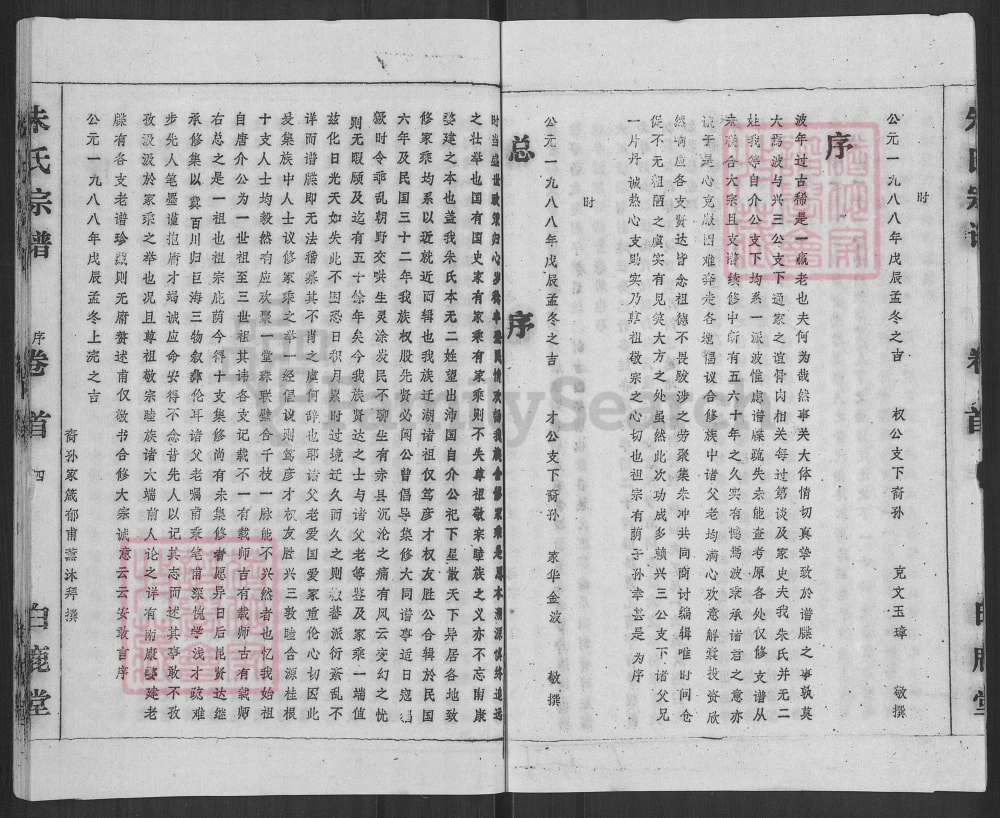 时
公元一九八八年戊辰孟冬之吉 权公支下裔孙 克文玉璋 敬撰
序
波年过古稀是一癫老也夫何为哉然事关大体情切真挚致於谱牒之事孰莫
大焉波与兴三公支下通家之谊骨肉相关每过第谈及家史夫我朱氏并无二
姓我等自介公支下均系一派波惟虑谱牒疏失未能查考原各处仅修支谱从
未联合大宗且支谱续修中断有五六十年之久实有憾焉波承谱君之意亦
诚于是心克服困难奔走各地倡议合修族中诸父老均满心欢意解囊投资欣
然响应各支贤达皆念祖德不畏跋涉之劳聚集朱冲共同商讨编辑唯时间仓
促不无粗陋之虞实有见笑大方之处虽然此次功成多赖兴三公支下诸父兄
一片丹诚热心支助实乃尊祖敬宗之心切也祖宗有荫子孙幸甚是为序
时
公元一九八八年戊辰孟冬之吉 才公支下裔孙 家华金波 敬撰
总序
时当盛世政策归心岁稔年丰民情欢畅我族合修家乘是思木本溯源慎终追远
之壮举也国有国史家有家乘有家乘则不失尊祖敬宗睦族之义亦不忘南康
婺建之本也盖我朱氏本无二姓望出沛国自介公祀下星散天下异居各地致
修家乘均系以近就近而辑也我族迁湖诸祖仅笃彦才权友胜公合辑於民国
六年及民国三十二年我族权股先贤必阁公曾倡导集修大同谱事适日寇祸
厥时令乖乱朝野交哄生灵涂炭民不聊生有赤县沉沦之痛有风云变幻之忧
则无暇顾及迄今年有五十馀年矣我族贤达之士与诸父老等鉴及家乘一端值
兹化日光天如失此不图恐日积月累时过境迁久而久之则椒蕃派衍紊乱不
详而谱牒即无法稽纂其不肖之虞何辞也耶诸父老爱国爱家重伦心切因此
爰集族中人士议修家乘之举一经倡议则笃彦才权友胜兴三敦睦含源桂根
十支人士均毅然响应欢聚一堂珠联璧合千枝一脉能不兴然者也忆我始祖
自唐介公为一世祖至三世祖至各支祖其讳各支记载不一有载师吉有载师古有载师
右总之是一祖也祖宗庇荫今得十支集修尚有未集修者愿异日后昆贤达继
承修集以冀百川归巨海三物叙彝伦耳诸父老嘱甫乘笔甫深愧学浅才疏难
步先人笔墨谨抱庸才竭诚应命安得不念昔先人以记其志而述其事敢不孜
孜汲汲於家乘之举也况且尊祖敬宗睦族诸大端前人论之详有南康婺建老
牒有各支老谱珍藏则无庸赘述甫仅敬书合修大宗诚意云云安敢言序
公元一九八八年戊辰孟冬上浣之吉
裔孙家箴郁甫薰沐拜撰
朱氏宗谱 序 卷首 四 白鹿堂